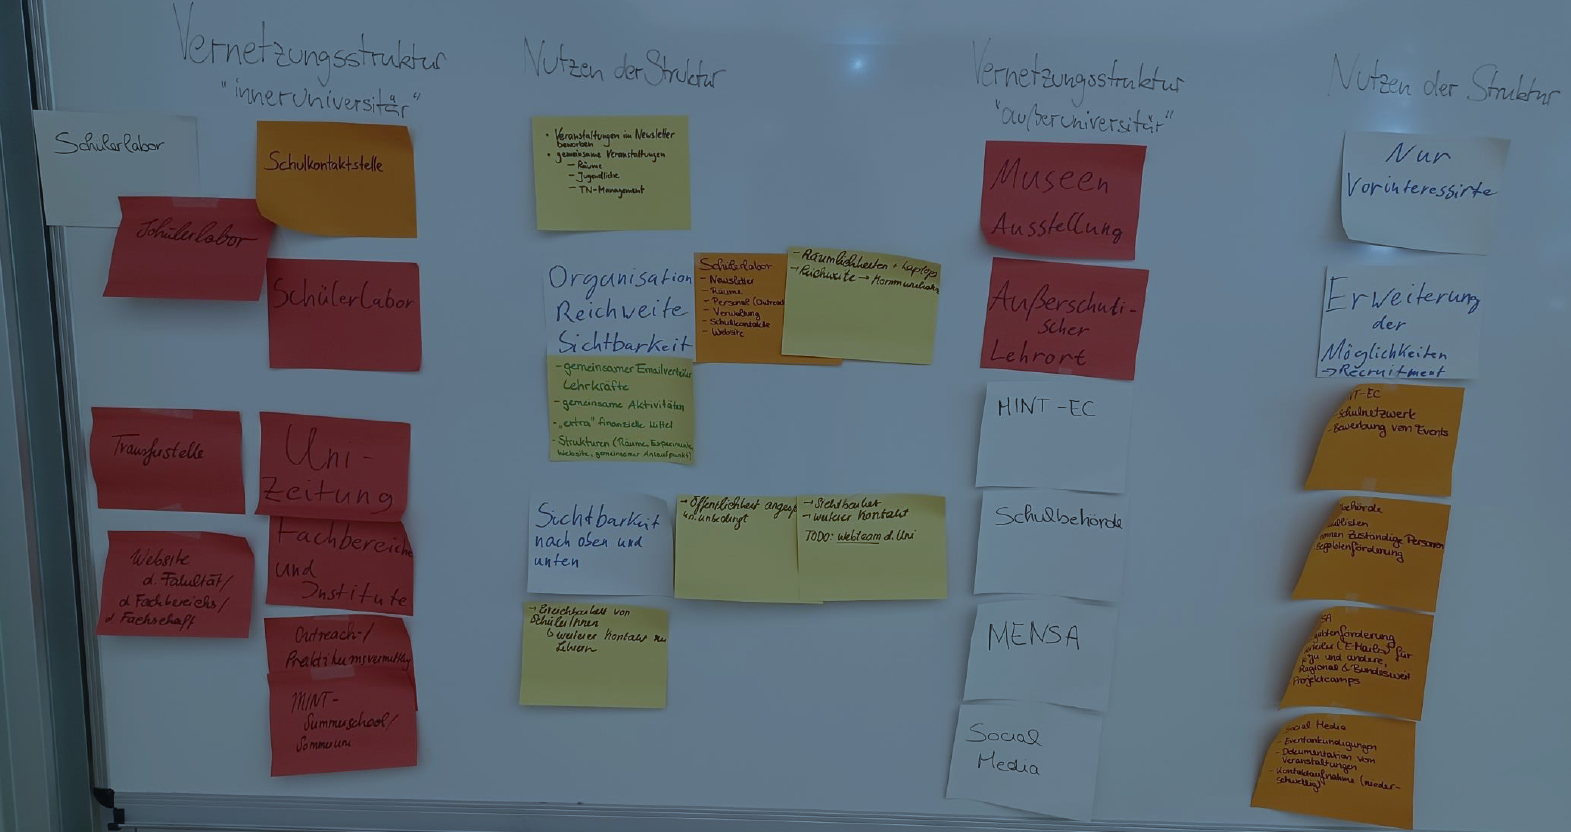 Vernetzungsstruktur
"inneruniversitär"
Schülerlabor
Schulkontaktstelle
Schülerlabor
Schülerlabor
Transferstelle
Uni-
Zeitung
Website
d. Fakultät/
d. Fachbereichs/
d. Fachschaft
Fachbereiche
und
Institute
Outreach-/
Praktikumsvermittlg
MINT-
Summerschool/
Sommeruni
Nutzen der Struktur
• Veranstaltungen im Newsletter
bewerben
• gemeinsame Veranstaltungen
- Räume
- Jugendliche
- TN-Management
Organisation
Reichweite
Sichtbarkeit
Schülerlabor
- Newsletter
- Räume
- Personal (Outreach
- Verwaltung
- Schulkontakte
- Website
- Räumlichkeiten + Laptops
→ Reichweite → Kommunikation
- gemeinsamer Emailverteiler
Lehrkräfte
- gemeinsame Aktivitäten
- "extra" finanzielle Mittel
- Strukturen (Räume, Experimente,
Website, gemeinsamer Anlaufpunkt)
Sichtbarkeit
nach oben und
unten
→ Öffentlichkeit
unbedingt
→ Sichtbarkeit
→ weiterer Kontakt
TODO: webteam d. Uni
→ Erreichbarkeit von
SchülerInnen
↳ weiterer Kontakt zu
Lehrern
Vernetzungsstruktur
"außeruniversitär"
Museen
Ausstellung
Außerschuli-
scher
Lehrort
MINT-EC
Schulbehörde
MENSA
Social
Media
Nutzen der Struktur
Nur
Vorinteressirte
Erweiterung
der
Möglichkeiten
→ Recruitment
NT-EC
Schulnetzwerk
- Bewerbung von Events
behörde
listen
nnen zuständige Personen
Begabtenförderung
SA
gabtenförderung
(E-Mails) für
zu und andere,
Regional & Bundesweit
Projektcamps
Social Media
- Eventankündigungen
- Dokumentation von
Veranstaltungen
- Kontaktaufnahme (nieder-
schwellig)